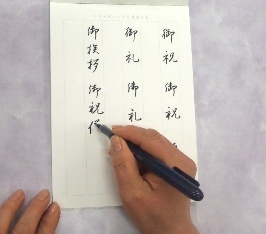 御祝 御祝
御礼 御礼
御挨拶 御祝